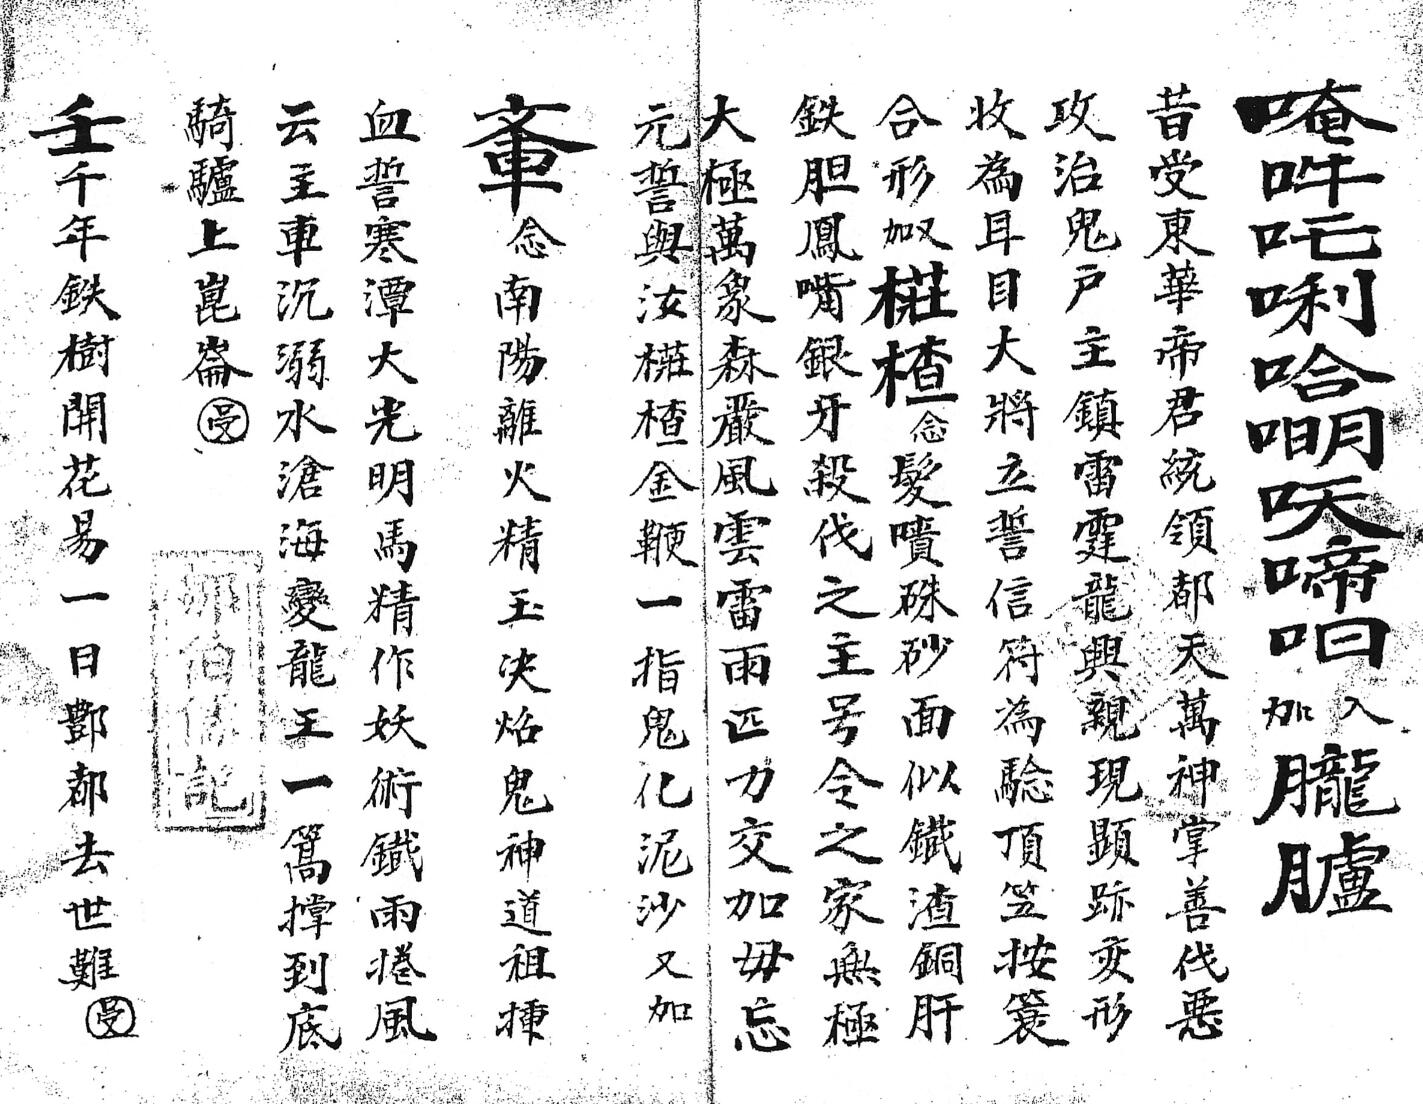 唵吽吒唎哈𠵇㕭啼呬入加朧臚
昔受東華帝君統領都天萬神掌善伐惡
攻治鬼戶主鎮雷霆龍興親現顕跡变形
收為耳目大將立誓信符為驗頂笠按簑
合形加又榵楂念髮噴硃砂面似鐵渣銅肝
鉄胆鳳嘴銀牙殺伐之主号令之家無極
大極萬象森嚴風雲雷雨匹力交加毋忘
元誓與汝楂金鞭一指鬼化泥沙又加
念南陽離火精玉决焰鬼神道祖捶
血誓寒潭大光明馬精作妖術鐵雨捲風
云主車沉溺水滄海變龍王一篙撑到底
騎驢上崑崙
壬千年鉄樹開花易一日酆都去世難
記